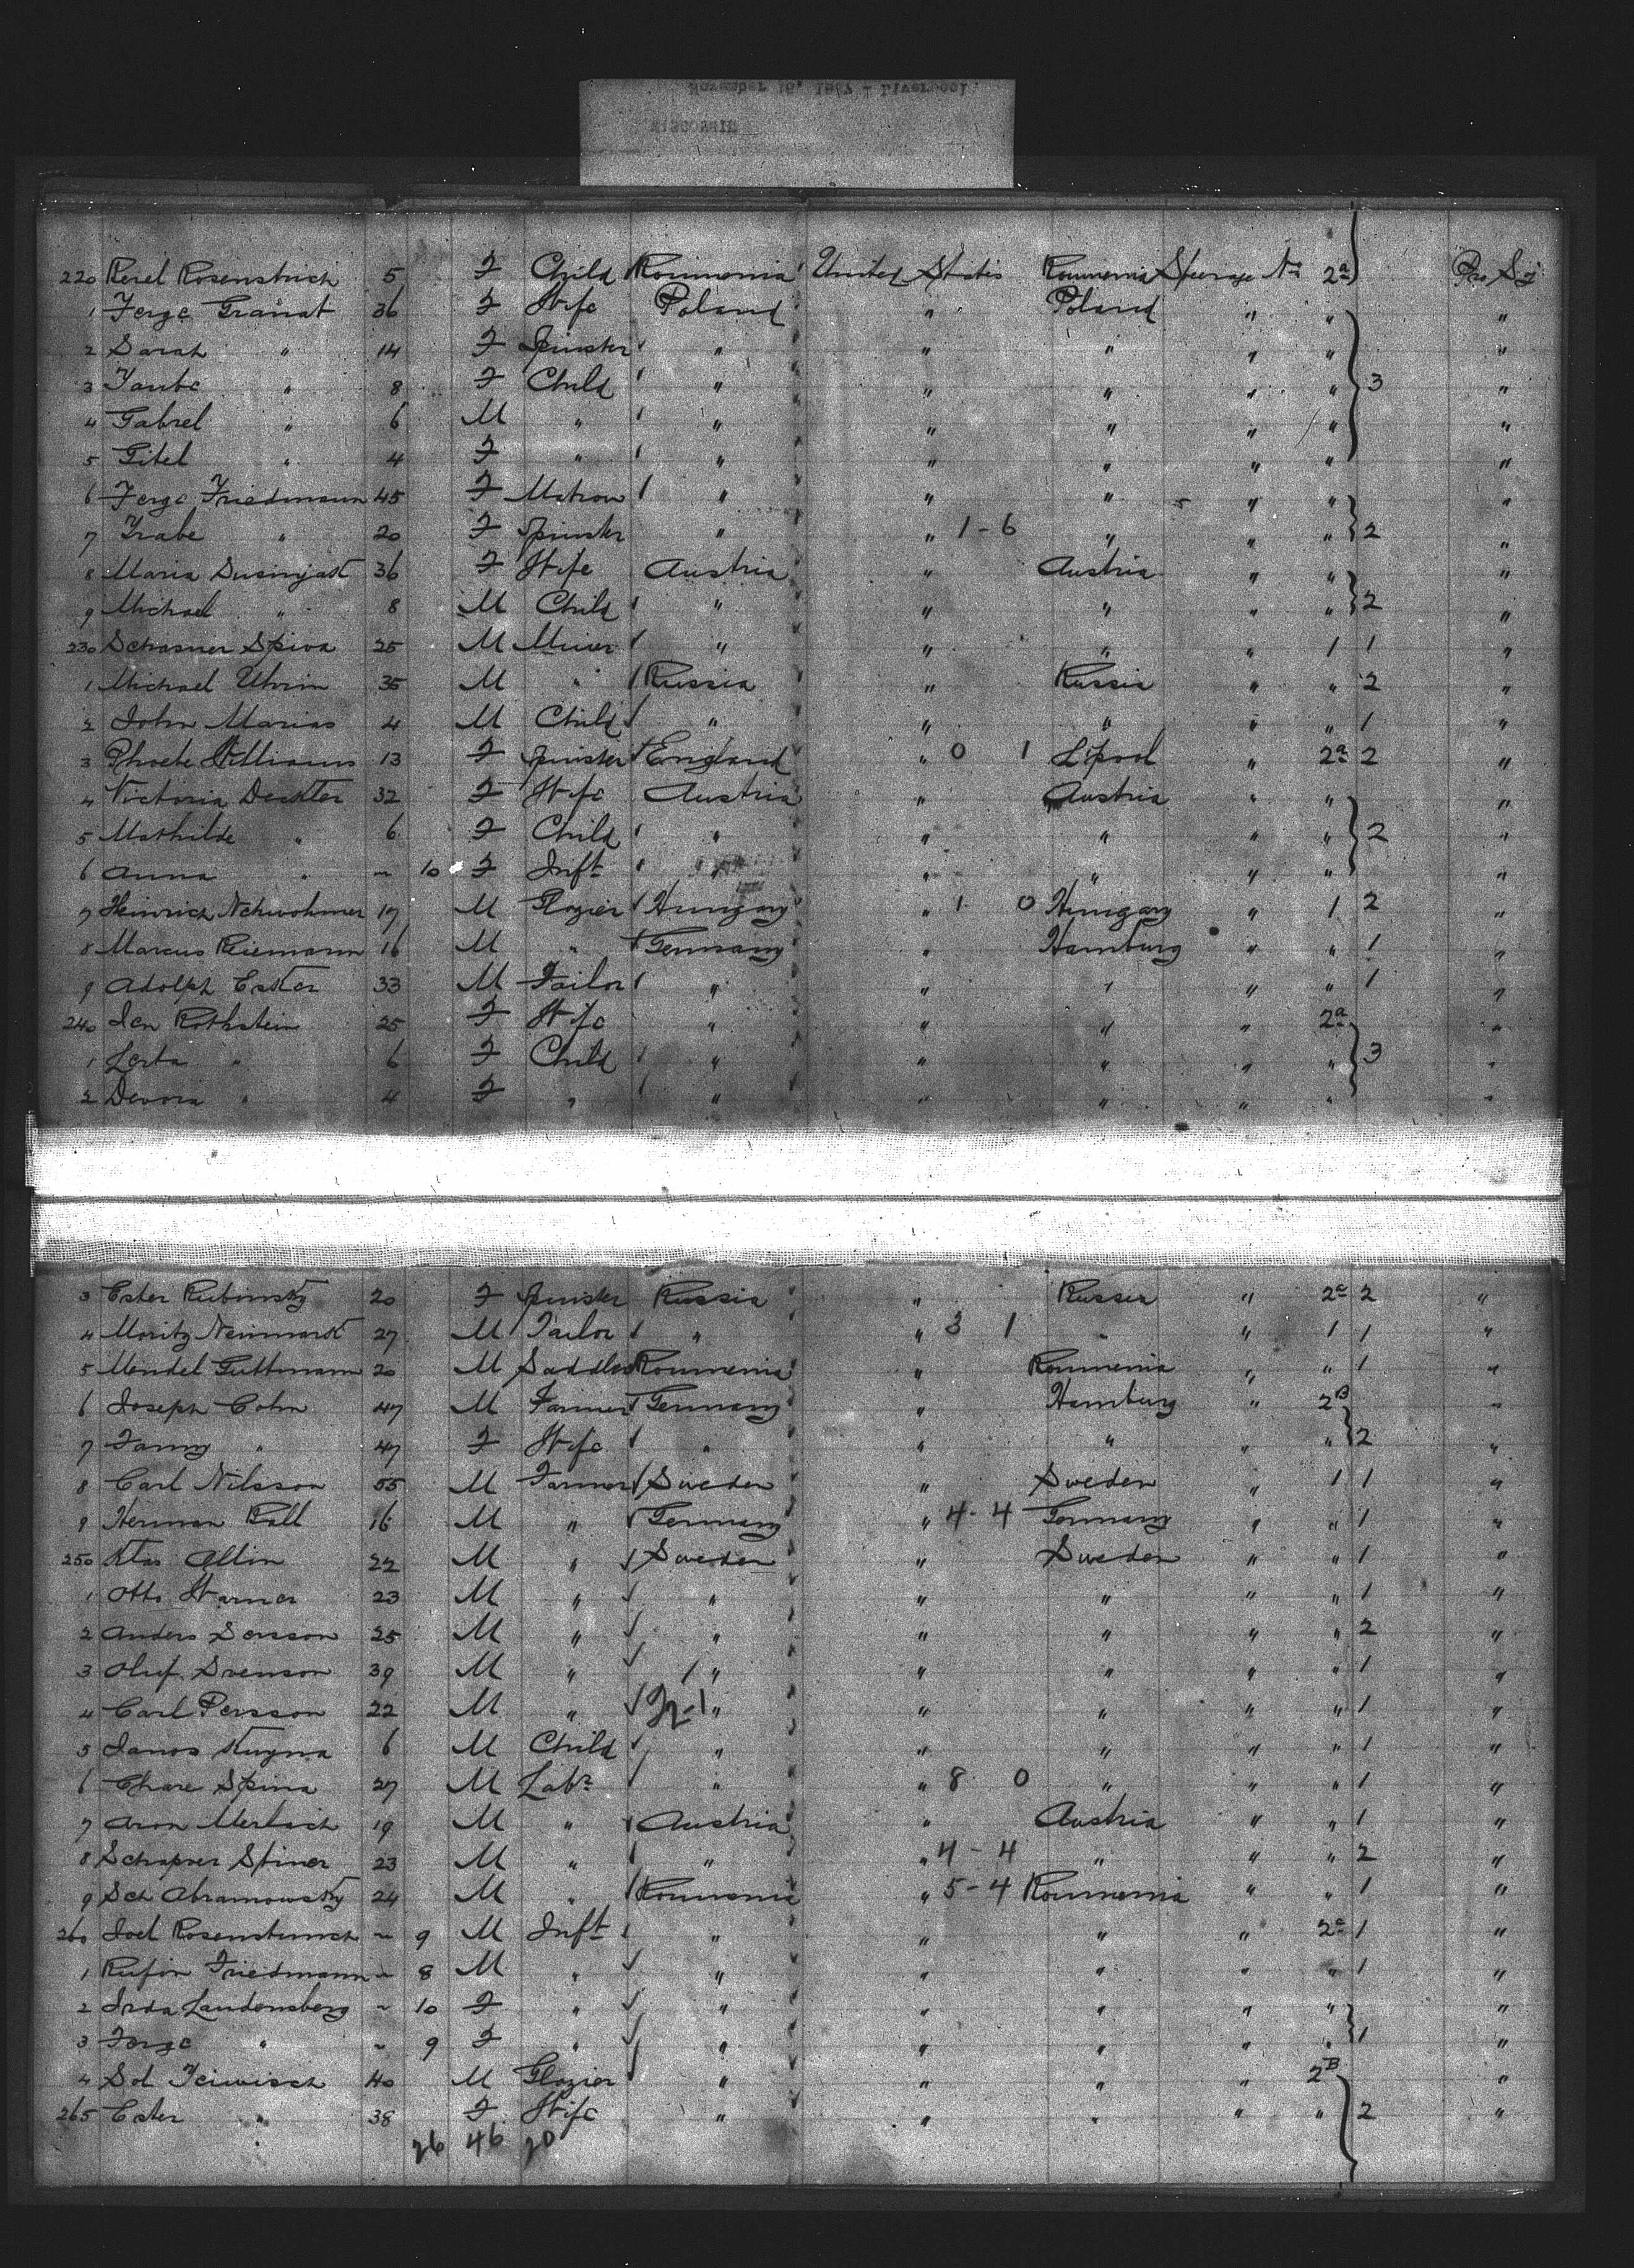 November 16, 1887 - Liverpool
WISCONSIN
220 Rerel Rosenstrich 5 F Child Roumenia United States Roumenia Steerage No 2a Pro Sj
1 Ferge Granat 36 F Wife Poland " Poland " " "
2 Sarah " 14 F Spinster " " " " " "
3 Taube " 8 F Child " " " " " 3 "
4 Gabrel " 6 M " " " " " " "
5 Gitel " 4 F " " " " " " "
6 Ferge Friedmann 45 F Matron " " " " " "
7 Trabe " 20 F Spinster " " 1-6 " " " 2 "
8 Maria Dusinjak 36 F Wife Austria " Austria " " "
9 Michael " 8 M Child " " " " " 2 "
230 Schasner Spiva 25 M Miner " " " " 1 1 "
1 Michael Uhrin 35 M " Russia " Russia " " 2 "
2 John Marias 4 M Child " " " " " 1 "
3 Phoebe Williams 13 F Spinster England " 0 1 L'pool " 2a 2 "
4 Victoria Deckter 32 F Wife Austria " Austria " " "
5 Mathilde " 6 F Child " " " " " 2 "
6 Anna " ~ 10 F Inft " " " " " "
7 Heinrich 17 M Glazier Hungary " 1 0 Hungary " 1 2 "
8 Marcus Riemann 16 M " Germany " Hamburg " " 1 "
9 Adolph Ester 33 M Tailor " " " " " 1 "
240 Rothstein 25 F Wife " " " " 2a "
1 Lerba " 6 F Child " " " " " 3 "
2 Devora " 4 F " " " " " " "
3 Ester Rubinsky 20 F Spinster Russia " Russia " 2a 2 "
4 Moritz Neimark 27 M Tailor " " 3 1 " " 1 1 "
5 Mendel Guttmann 20 M Saddler Roumenia " Roumenia " " 1 "
6 Joseph Cohn 47 M Farmer Germany " Hamburg " 2B "
7 Fanny " 47 F Wife " " " " " 2 "
8 Carl Nilsson 55 M Farmer Sweden " Sweden " 1 1 "
9 Herman Rall 16 M " Germany " 4-4 Germany " " 1 "
250 Klas Allin 22 M " Sweden " Sweden " " 1 "
1 Otto Warner 23 M " " " " " " 1 "
2 Anders Persson 25 M " " " " " " 2 "
3 Oluf Svenson 39 M " " " " " " 1 "
4 Carl Persson 22 M " " " " " " 1 "
5 Janos Kuyna 6 M Child " " " " " 1 "
6 Chare Spina 27 M Labr " " 8 0 " " " 1 "
7 Aron Merbach 19 M " Austria " Austria " " 1 "
8 Schapver Stiner 23 M " " " 4-4 " " " 2 "
9 Sch Abramowsky 24 M " Roumenia " 5-4 Roumenia " " 1 "
260 Joel ~ 9 M Inft " " " " 2a 1 "
1 Rufin Friedmann ~ 8 M " " " " " " 1 "
2 Landensberg ~ 10 F " " " " " " "
3 Ferge " ~ 9 F " " " " " " 1 "
4 Sol 40 M Glazier " " " " 2B "
265 Ester " 38 F Wife " " " " " 2 "
26 46 20